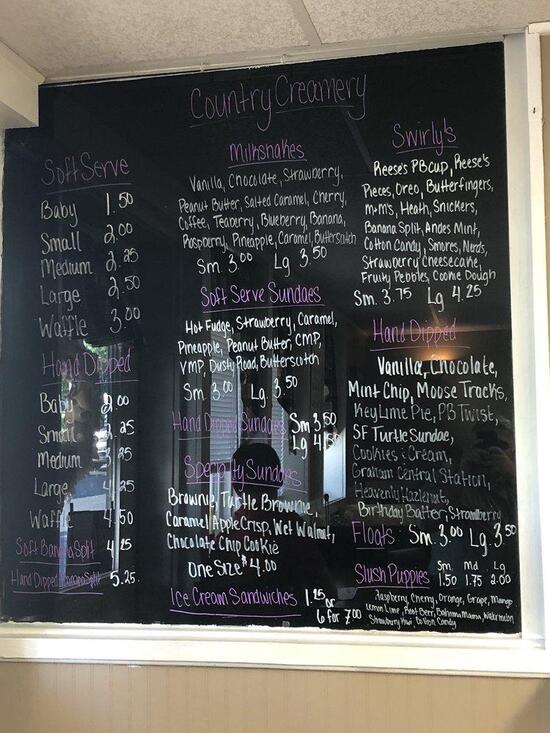 Country Creamery
Soft Serve
Baby 1.50
Small 2.00
Medium 2.25
Large 2.50
Waffle 3.00
Hand Dipped
Baby 2.00
Small .25
Medium .25
Large .25
Waffle 4.50
Soft Banana Split 4.75
Hand Dipped Banana Split 5.25
Milkshakes
Vanilla, Chocolate, Strawberry,
Peanut Butter, Salted Caramel, Cherry,
Coffee, Teaberry, Blueberry, Banana,
Raspberry, Pineapple, Caramel, Butterscotch
Sm. 3.00 Lg 3.50
Soft Serve Sundaes
Hot Fudge, Strawberry, Caramel,
Pineapple, Peanut Butter, CMP,
VMP, Dusty Road, Butterscotch
Sm. 3.00 Lg. 3.50
Hand Dipped Sundaes Sm 3.50
Lg 4.50
Specialty Sundaes
Brownie, Turtle Brownie,
Caramel Apple Crisp, Wet Walnut,
Chocolate Chip Cookie
One Size $4.00
Ice Cream Sandwiches 1.25 or
6 for 7.00
Swirly's
Reese's PB Cup, Reese's
Pieces, Oreo, Butterfingers,
m+m's, Heath, Snickers,
Banana Split, Andes Mint,
Cotton Candy, Smores, Nerds,
Strawberry Cheesecake,
Fruity Pebbles, Cookie Dough
Sm. 3.75 Lg 4.25
Hand Dipped
Vanilla, Chocolate,
Mint Chip, Moose Tracks,
Key Lime Pie, PB Twist,
SF Turtle Sundae,
Cookies & Cream,
Graham Central Station,
Heavenly Hazelnut,
Birthday Batter, Strawberry
Floats Sm. 3.00 Lg. 3.50
Slush Puppies Sm. 1.50 Md. 1.75 Lg 2.00
Raspberry, Cherry, Orange, Grape, Mango
Lemon Lime, Root Beer, Bahama Mama, Watermelon
Strawberry Kiwi, Cotton Candy